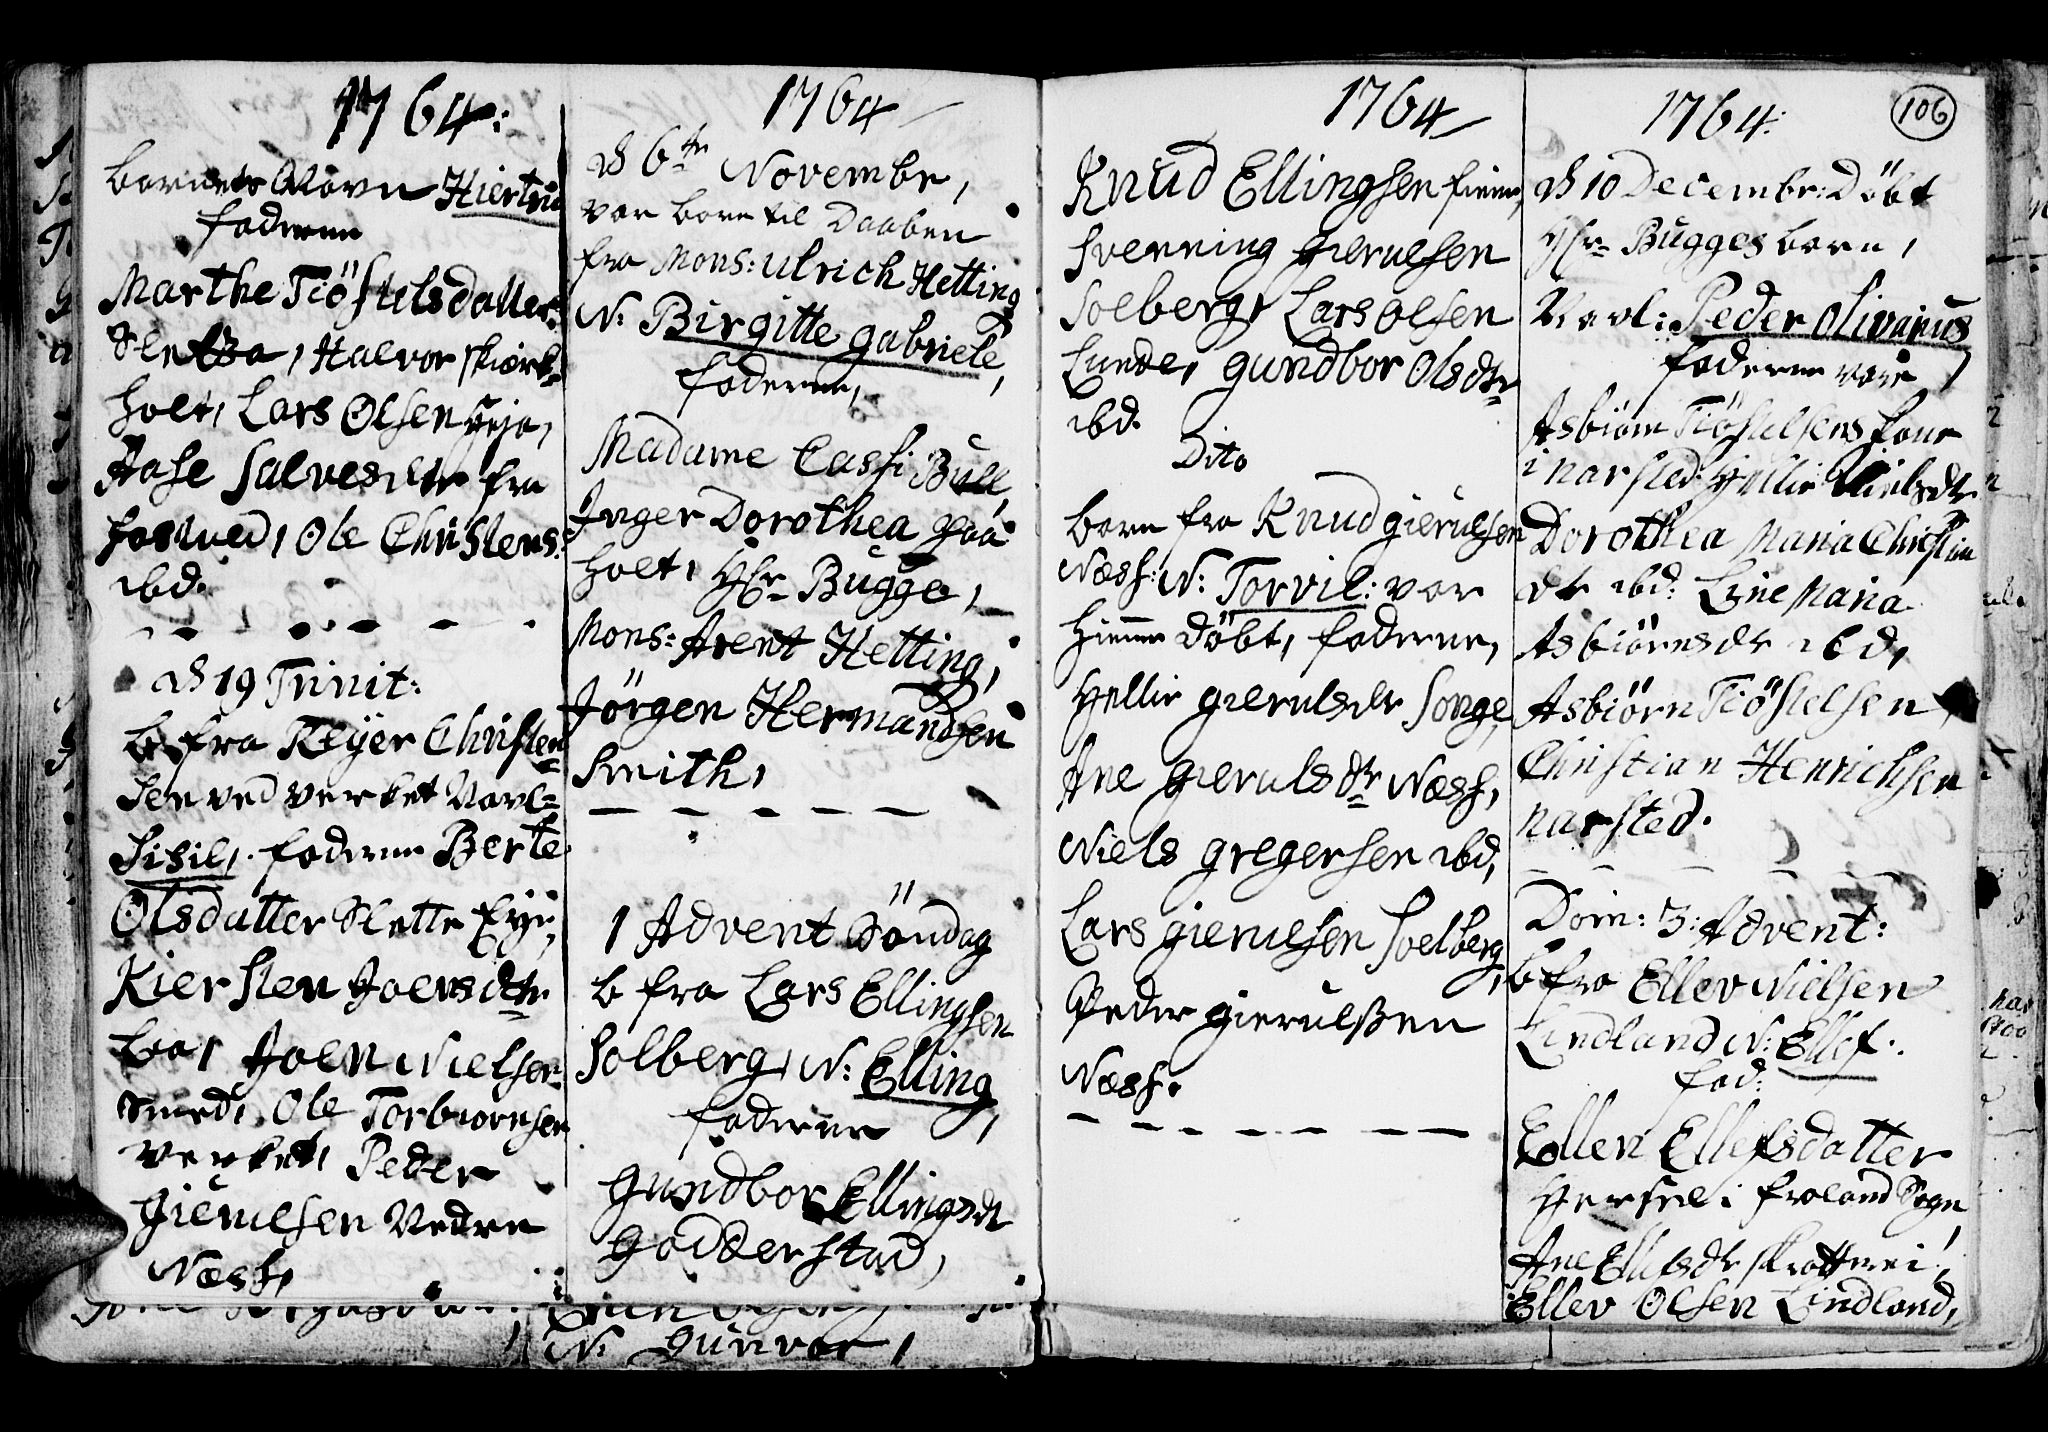 1764:
barnets Navn Hiertrud
fadderne
Marthe Tiöstelsdatter
Sletta, Halvor skiærk-
holt, Lars Olsen Heja,
Aase Salvesdtr fra
fosved, Ole Christens:
ibd.
d 19 Trinit:
b fra Reyer Christen
sen ved verket Navl=
Sisil, fadderne Berte
Olsdatter Slette Eye,
Kiersten Joensdtr
boe, Joen Nielsen
Smed, Ole Torbiornsen
verket, Peder
Gierulsen Nedre
Næss,
1764
d 6te Novembr,
var barn til Daaben
fra Mons: Ulrich Hetting
N: Birgitte Gabriele,
fadderne,
Madame Cassi Bull,
Inger Dorothea Haa
holt, Hr Bugge,
Mons: Arent Hetting,
Jörgen Hermandsen
Smith,
1 Advent Söndag
b fra Lars Ellingsen
Solberg, N: Elling
fadderne,
Gundbor Ellingsdt
Godderstad,
N: Gunvor,
1764
Knud Ellingsen
Sverning Gierulsen
Solberg, Lars Olsen
Lunde, Gundbor Olsdtr
ibd.
Dito
barn fra Knud Gierulsen
Næss: N: Torvil: var
hiemme Döbt, fadderne,
Hellie Gierulsdtr Songe,
Ane Gierulsdtr Næss,
Niels Gregersen ibd,
Lars Gierulsen Solberg,
Peder Gierulssen
Næss.
1764:
106
d 10 Decembr: Döbt
Hr Bugges barn,
Navl: Peder Olivarius
fadderne vare,
Asbiørn Tiöstelsens kone
i Narsted, Hellie Nielsdtr
Dorothea Maria Christian
dtr ibd: Line Maria
Asbiörnsdtr ibd,
Asbiörn Tiöstelsen,
Christian Henrichsen
Narsted.
Dom: 3: Advent:
b fra Ellev Nielsen
Lindland N: Ellef.
fad:
Ellen Ellefsdatter
Hersel i Froland Sogn,
Ane Ellefsdtr skottnei,
Ellev Olsen Lindland,